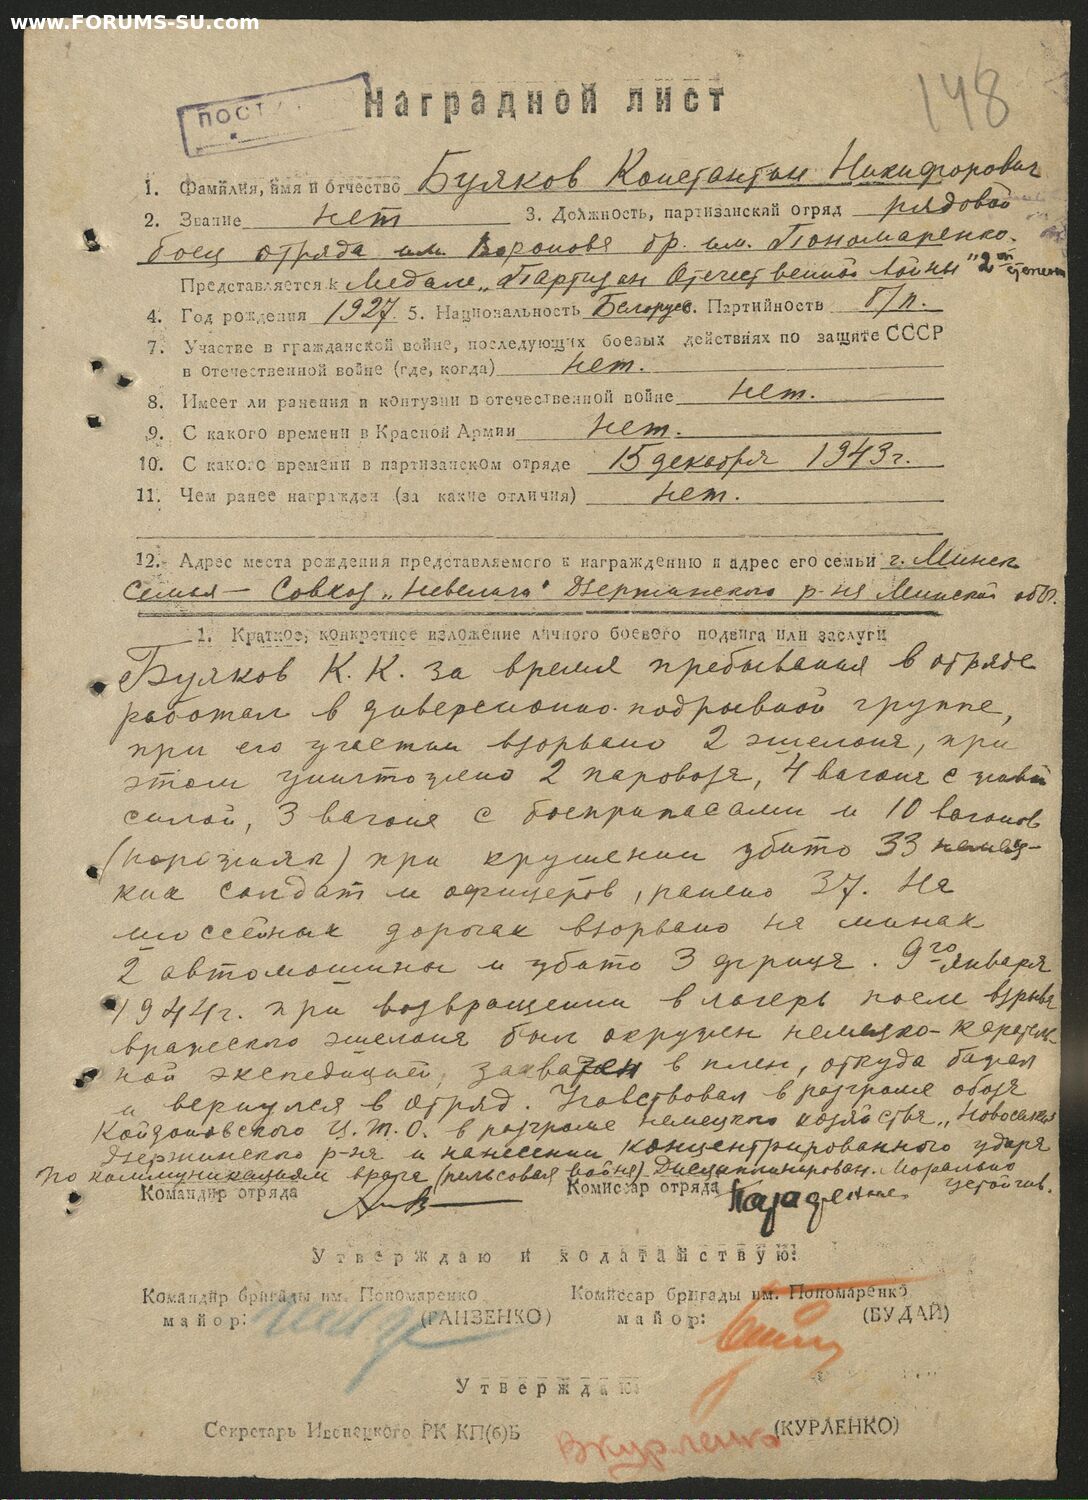 www.FORUMS-SU.com
ПОСТ
148
Наградной лист
1. Фамилия, имя и отчество Буяков Константин Никифорович
2. Звание нет 3. Должность, партизанский отряд рядовой
боец отряда им. Воронова бр. им. Пономаренко.
Представляется к Медале „Партизан Отечественной войны" 2ой степени
4. Год рождения 1927. 5. Национальность Белорус 6. Партийность б/п.
7. Участие в гражданской войне, последующих боевых действиях по защите СССР
в отечественной войне (где, когда) нет.
8. Имеет ли ранения и контузии в отечественной войне нет.
9. С какого времени в Красной Армии нет.
10. С какого времени в партизанском отряде 15 декабря 1943 г.
11. Чем ранее награжден (за какие отличия) нет.
12. Адрес места рождения представляемого к награждению и адрес его семьи г. Минск
Семья — Совхоз Дзержинского р-на Минской обл.
1. Краткое, конкретное изложение личного боевого подвига или заслуги
Буяков К. К. за время пребывания в отряде
работал в диверсионно-подрывной группе,
при его участии взорвано 2 эшелона, при
этом уничтожено 2 паровоза, 4 вагона с живой
силой, 3 вагона с боеприпасами и 10 вагонов
(порожняк) при крушении убито 33 немец-
ких солдат и офицеров, ранено 37. На
шоссейных дорогах взорвано на минах
2 автомашины и убито 3 фрица. 9го января
1944 г. при возвращении в лагерь после взрыва
вражеского эшелона был окружен немецко-каратель-
ной экспедицией, захвачен в плен, откуда бежал
и вернулся в отряд. Участвовал в разгроме обоза
Койдановского в разгроме немецкого хозяйства
Дзержинского р-на и нанесении концентрированного удара
по коммуникациям врага (рельсовая война) Дисциплинирован. Морально устойчив.
Командир отряда Комиссар отряда
Утверждаю и ходатайствую:
Командир бригады им. Пономаренко Комиссар бригады им. Пономаренко
майор: (ГАНЗЕНКО) майор: (БУДАЙ)
Утверждаю
Секретарь Ивенецкого РК КП(б)Б Вкурленко (КУРЛЕНКО)